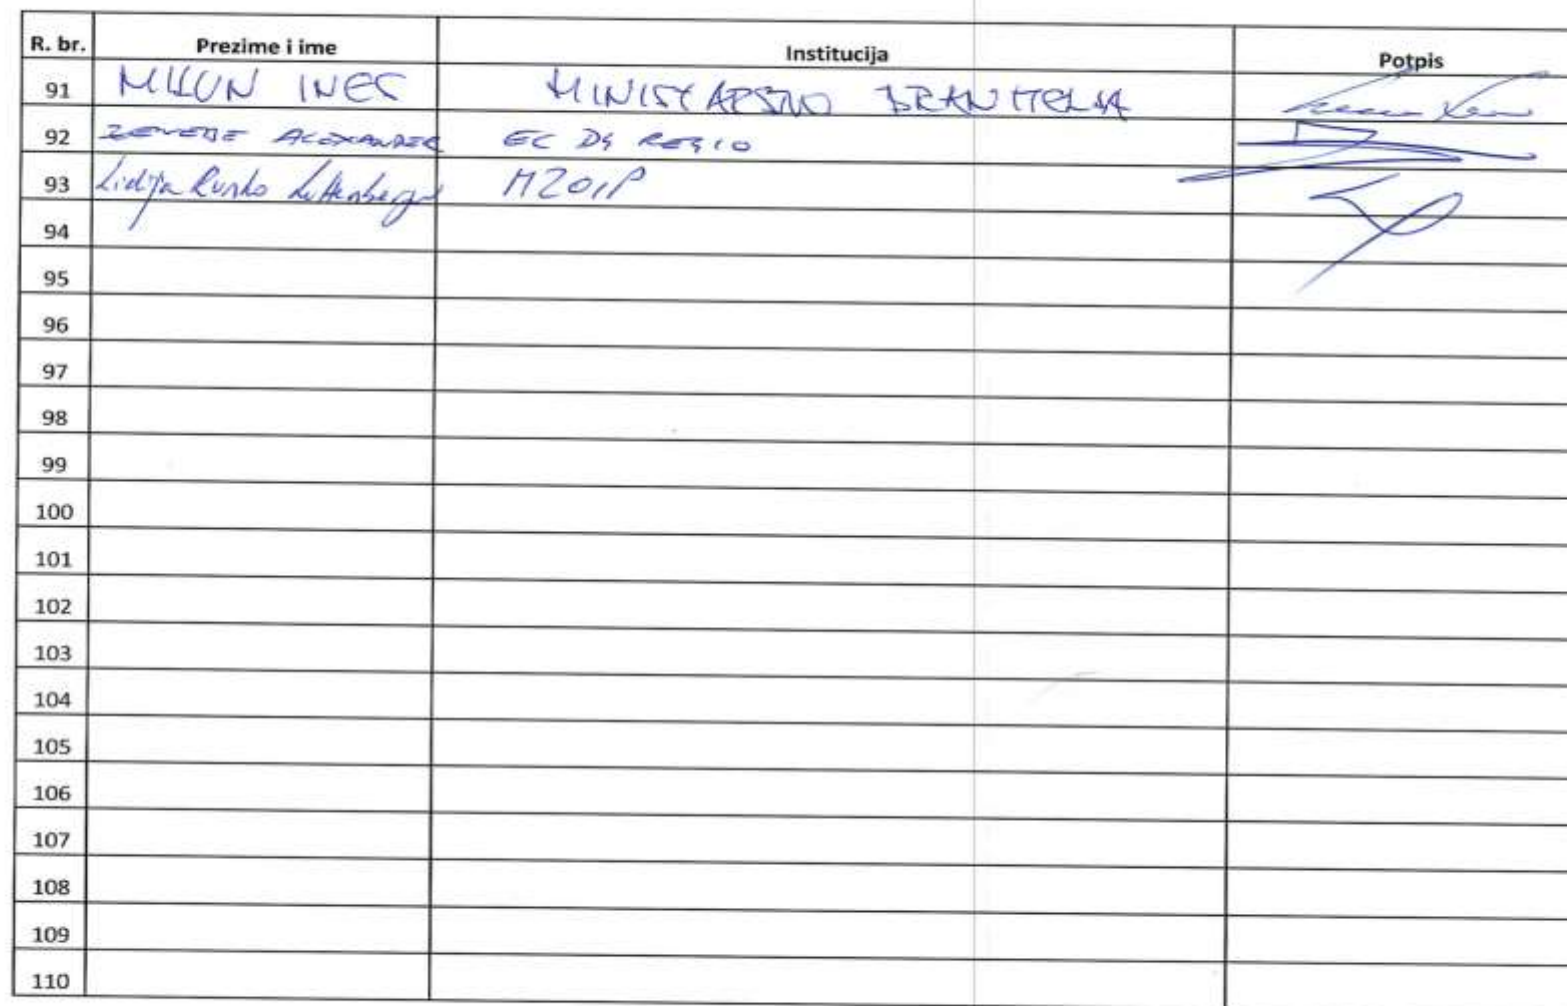 R. br. Prezime i ime Institucija Potpis
91 MILUN INES MINISTARSTVO BRANITELJA
92 ALEXANDER EC DG REGIO
93 Lidija Runko Luttenberger MZOIP
94
95
96
97
98
99
100
101
102
103
104
105
106
107
108
109
110